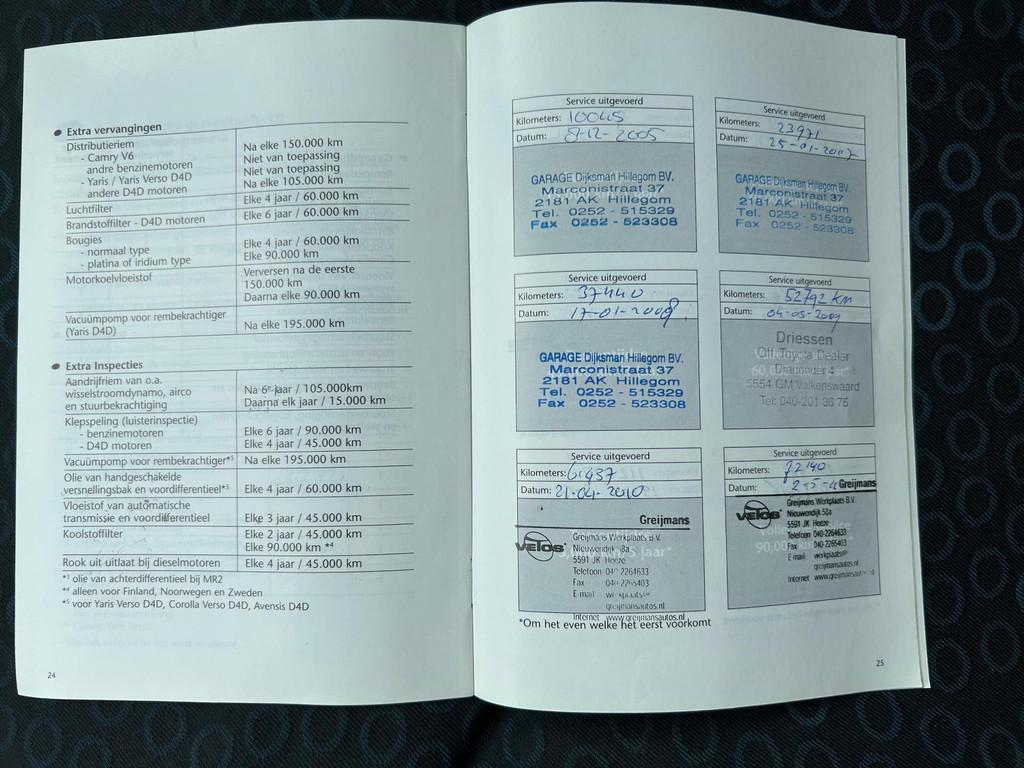 Extra vervangingen
Distributieriem
- Camry V6 Na elke 150.000 km
andere benzinemotoren Niet van toepassing
- Yaris / Yaris Verso D4D Niet van toepassing
andere D4D motoren Na elke 105.000 km
Luchtfilter Elke 4 jaar / 60.000 km
Brandstoffilter - D4D motoren Elke 6 jaar / 60.000 km
Bougies
- normaal type Elke 4 jaar / 60.000 km
- platina of iridium type Elke 90.000 km
Motorkoelvloeistof Verversen na de eerste
150.000 km
Daarna elke 90.000 km
Vacuümpomp voor rembekrachtiger
(Yaris D4D) Na elke 195.000 km
Extra Inspecties
Aandrijfriem van o.a.
wisselstroomdynamo, airco Na 6e jaar / 105.000km
en stuurbekrachtiging Daarna elk jaar / 15.000 km
Klepspeling (luisterinspectie)
- benzinemotoren Elke 6 jaar / 90.000 km
- D4D motoren Elke 4 jaar / 45.000 km
Vacuümpomp voor rembekrachtiger*5 Na elke 195.000 km
Olie van handgeschakelde
versnellingsbak en voordifferentieel*3 Elke 4 jaar / 60.000 km
Vloeistof van automatische
transmissie en voordifferentieel Elke 3 jaar / 45.000 km
Koolstoffilter Elke 2 jaar / 45.000 km
Elke 90.000 km *4
Rook uit uitlaat bij dieselmotoren Elke 4 jaar / 45.000 km
*3 olie van achterdifferentieel bij MR2
*4 alleen voor Finland, Noorwegen en Zweden
*5 voor Yaris Verso D4D, Corolla Verso D4D, Avensis D4D
24
Service uitgevoerd
Kilometers: 10045
Datum: 8-12-2005
GARAGE Dijksman Hillegom BV.
Marconistraat 37
2181 AK Hillegom
Tel. 0252 - 515329
Fax 0252 - 523308
Service uitgevoerd
Kilometers: 23971
Datum: 25-01-2007
GARAGE Dijksman Hillegom BV.
Marconistraat 37
2181 AK Hillegom
Tel. 0252 - 515329
Fax 0252 - 523308
Service uitgevoerd
Kilometers: 37440
Datum: 17-01-2008
GARAGE Dijksman Hillegom BV.
Marconistraat 37
2181 AK Hillegom
Tel. 0252 - 515329
Fax 0252 - 523308
Service uitgevoerd
Kilometers: 52792 km
Datum: 04-05-2009
Driessen
Off. Toyota Dealer
5554 GM Valkenswaard
Tel: 040-201 36 75
Service uitgevoerd
Kilometers: 61437
Datum: 21-04-2010
Greijmans
VELOS
Greijmans Werkplaats B.V.
Nieuwendijk
5591 JK Heeze
Telefoon 040 2264633
Fax 040 2265403
E mail werkplaats@
greijmansautos.nl
Internet www.greijmansautos.nl
Service uitgevoerd
Kilometers: 72140
Datum: 2-5-
Greijmans
VELOS
Greijmans Werkplaats B.V.
Nieuwendijk
5591 JK Heeze
Telefoon 040-2264633
Fax 040-2265403
E mail werkplaats@
greijmansautos.nl
Internet www.greijmansautos.nl
*Om het even welke het eerst voorkomt
25